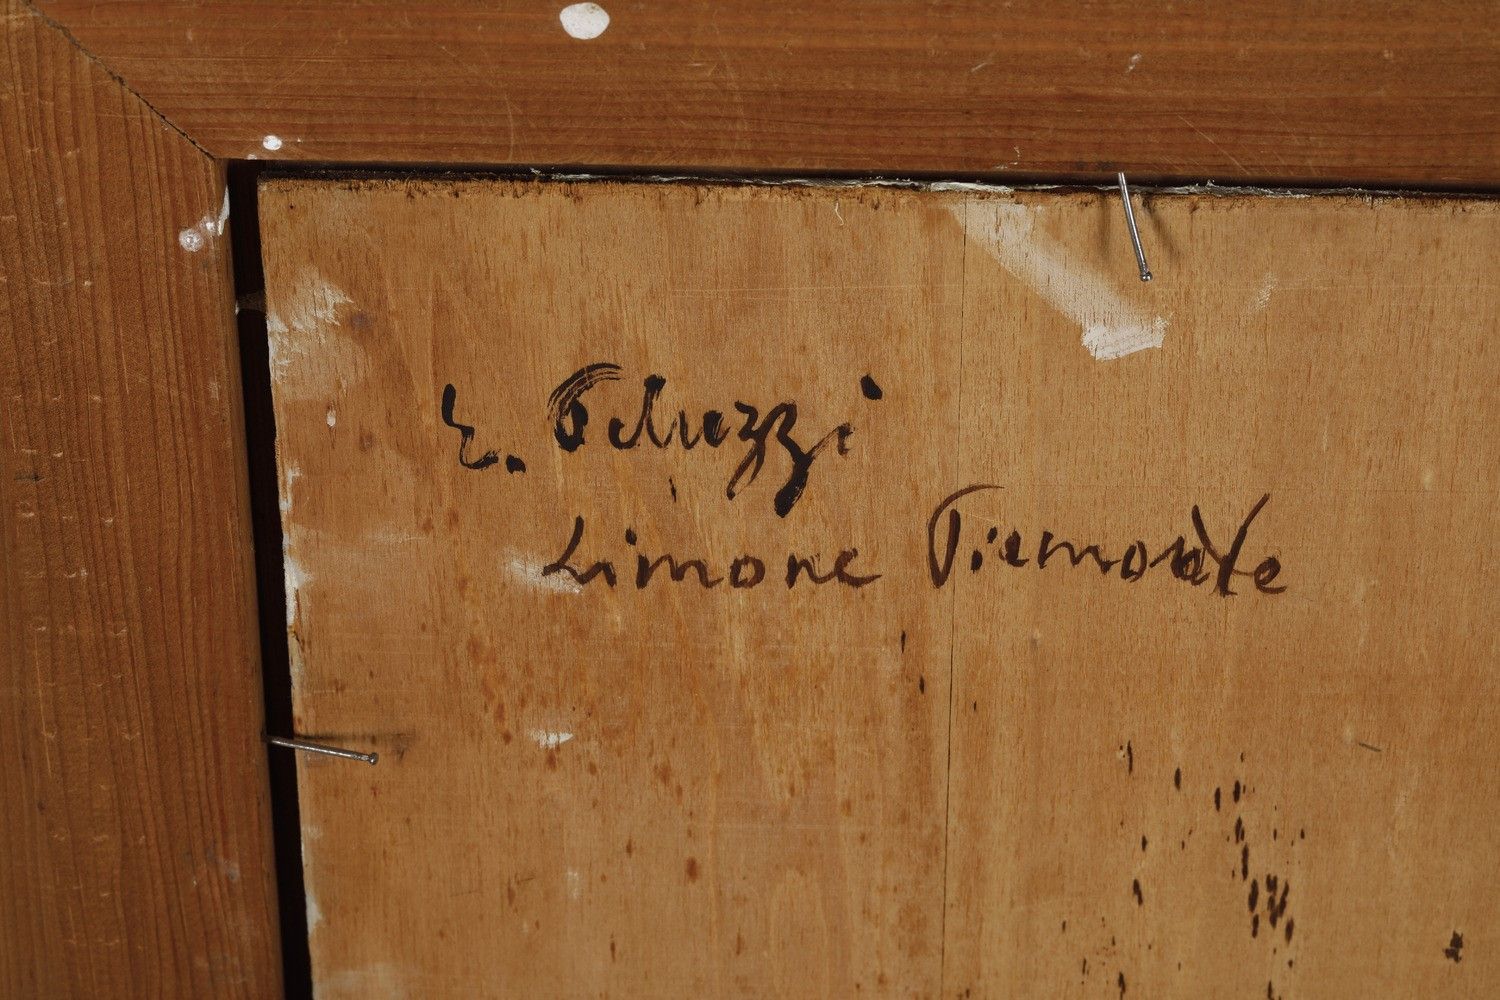 E. Peluzzi
Limone Piemonte